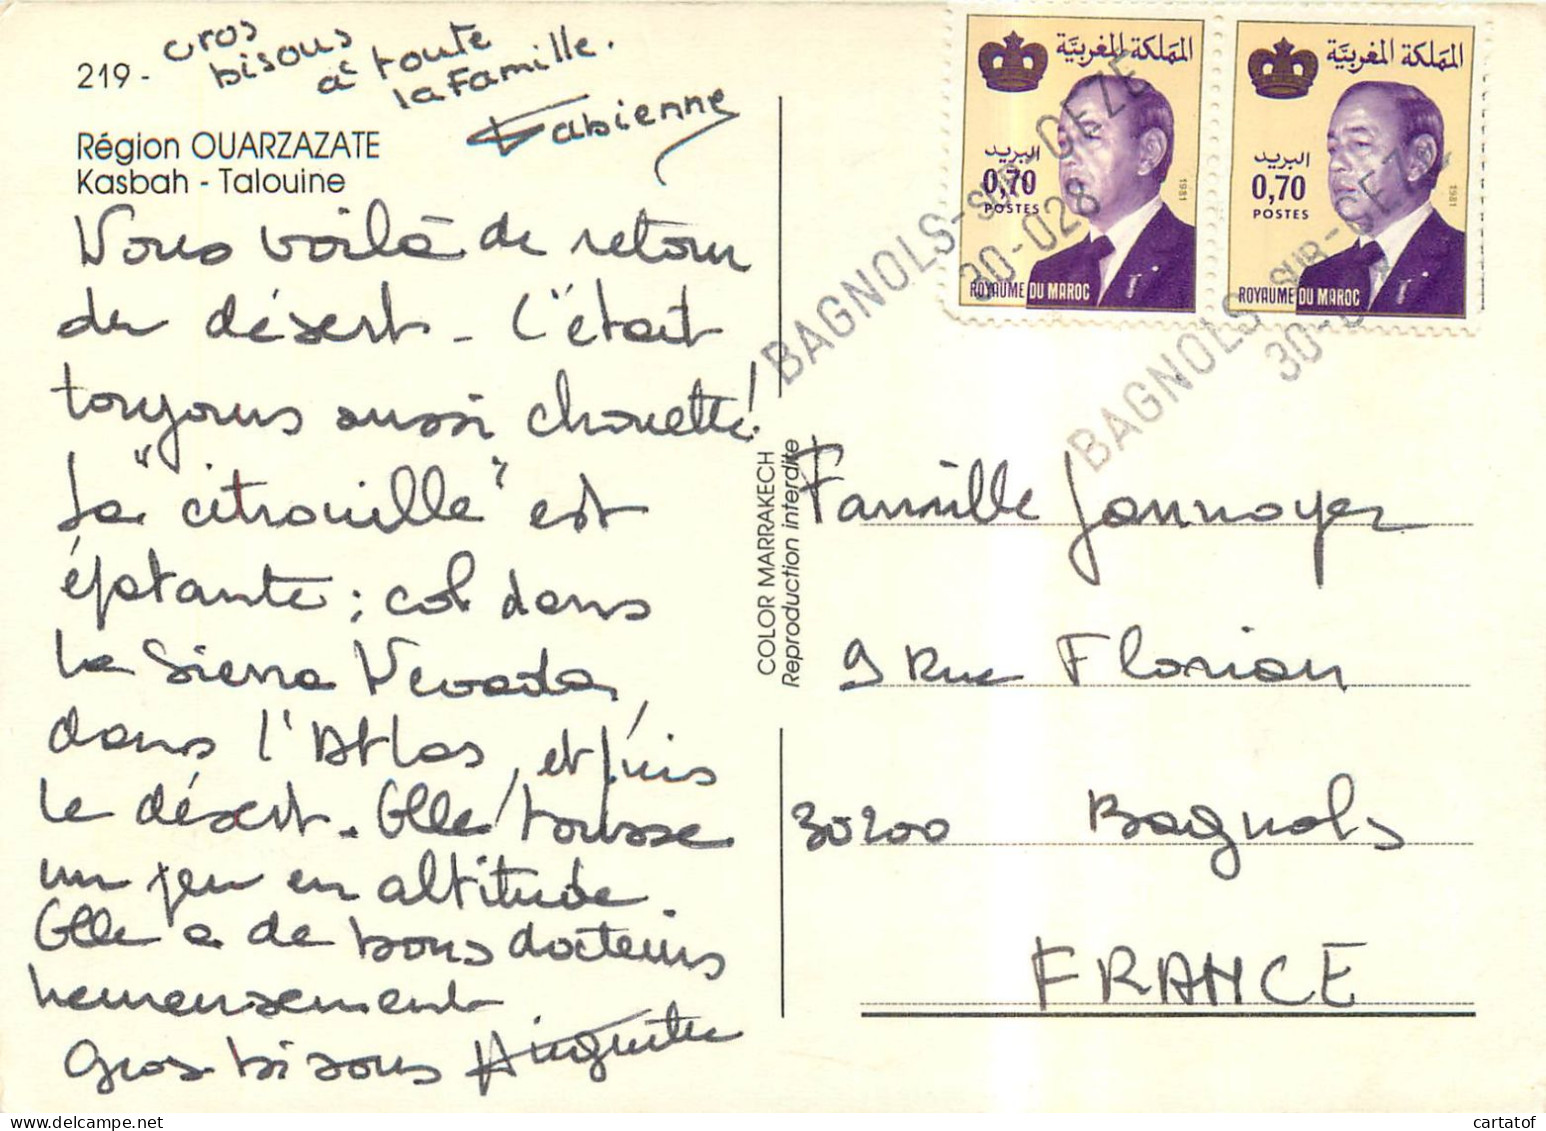 219 -
Gros
bisous
à toute
la Famille.
Fabienne
Région OUARZAZATE
Kasbah - Talouine
Nous voilà de retour
du désert - C'était
toujours aussi chouette!
La "citrouille" est
épatante ; col dans
la Sierra Nevada,
dans l'Atlas, et puis
le désert. Elle tousse
un peu en altitude
Elle a de bons docteurs
heureusement
Gros bisous Huguette
COLOR MARRAKECH
Reproduction interdite
المملكة المغربية
البريد
0,70
POSTES
1981
ROYAUME DU MAROC
المملكة المغربية
البريد
0,70
POSTES
1981
ROYAUME DU MAROC
BAGNOLS-SUR-CEZE
30-028
BAGNOLS-SUR-CEZE
30-0
Famille Jonnoyer
9 Rue Florian
30200 Bagnols
FRANCE
cartatof